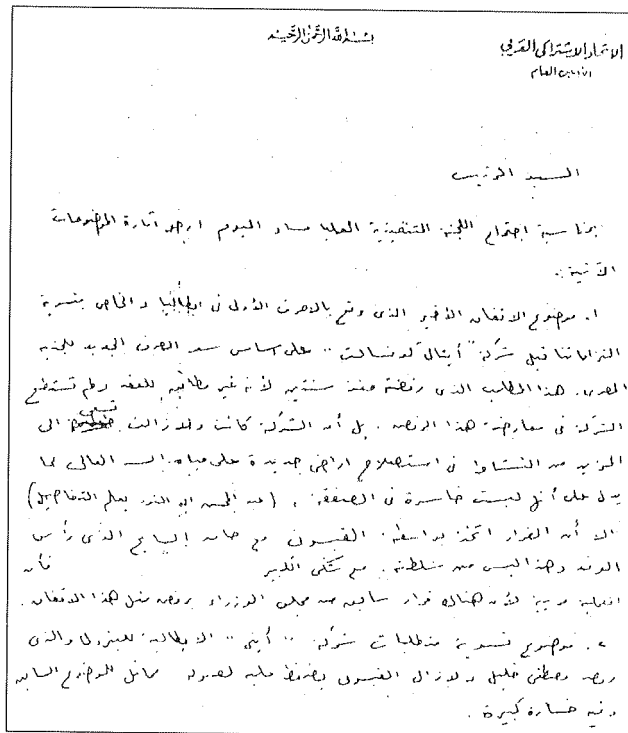 بسم الله الرحمن الرحيم
الاتحاد الاشتراكى العربى
الأمين العام
السيد الرئيس
بمناسبة اجتماع اللجنة التنفيذية العليا مساء اليوم ارجو اثارة الموضوعات
الآتية:
١. موضوع الاتفاق الأخير الذى وقع بالاحرف الأولى فى ايطاليا والخاص بتسوية
التزاماتنا قبل شركة "أيتال كونسالت" على اساس سعر الصرف الجديد للجنيه
المصرى. هذا المطلب الذى رفضته منذ سنتين لأنه غير مطابق للعقد ولم تستطع
الشركة فى معارضة هذا الرفض. بل أن الشركة كانت ولا زالت تسعى الى
المزيد من النشاط فى استصلاح اراضى جديدة على مياه السد العالى مما
يدل على أنها ليست خاسرة فى الصفقة. (عبد المحسن ابو النور يعلم التفاصيل)
الا أن القرار اتخذ بواسطة القيسونى مع حامد السايح الذى رأس
الوفد وهذا ليس من سلطته. مع شكى الكبير فأن
العملية مريبة لأن هناك قرار سابق من مجلس الوزراء برفض مثل هذا الاتفاق.
٢. موضوع تسوية متطلبات شركة "أينى" الايطالية للبترول والذى
رفضه مصطفى خليل ولا زال القيسونى يضغط عليه لقبوله مماثل للموضوع السابق
وفيه خسارة كبيرة.